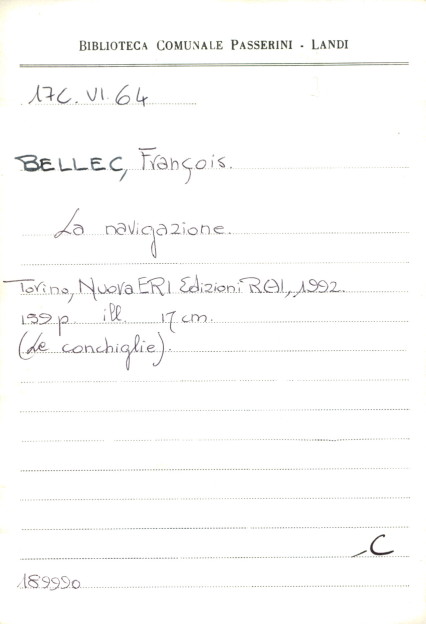 BIBLIOTECA COMUNALE PASSERINI - LANDI
17C. VI. 64
BELLEC, François.
La navigazione.
Torino, Nuova ERI Edizioni RAI, 1992.
199 p. ill. 17 cm.
(Le conchiglie).
C
189990